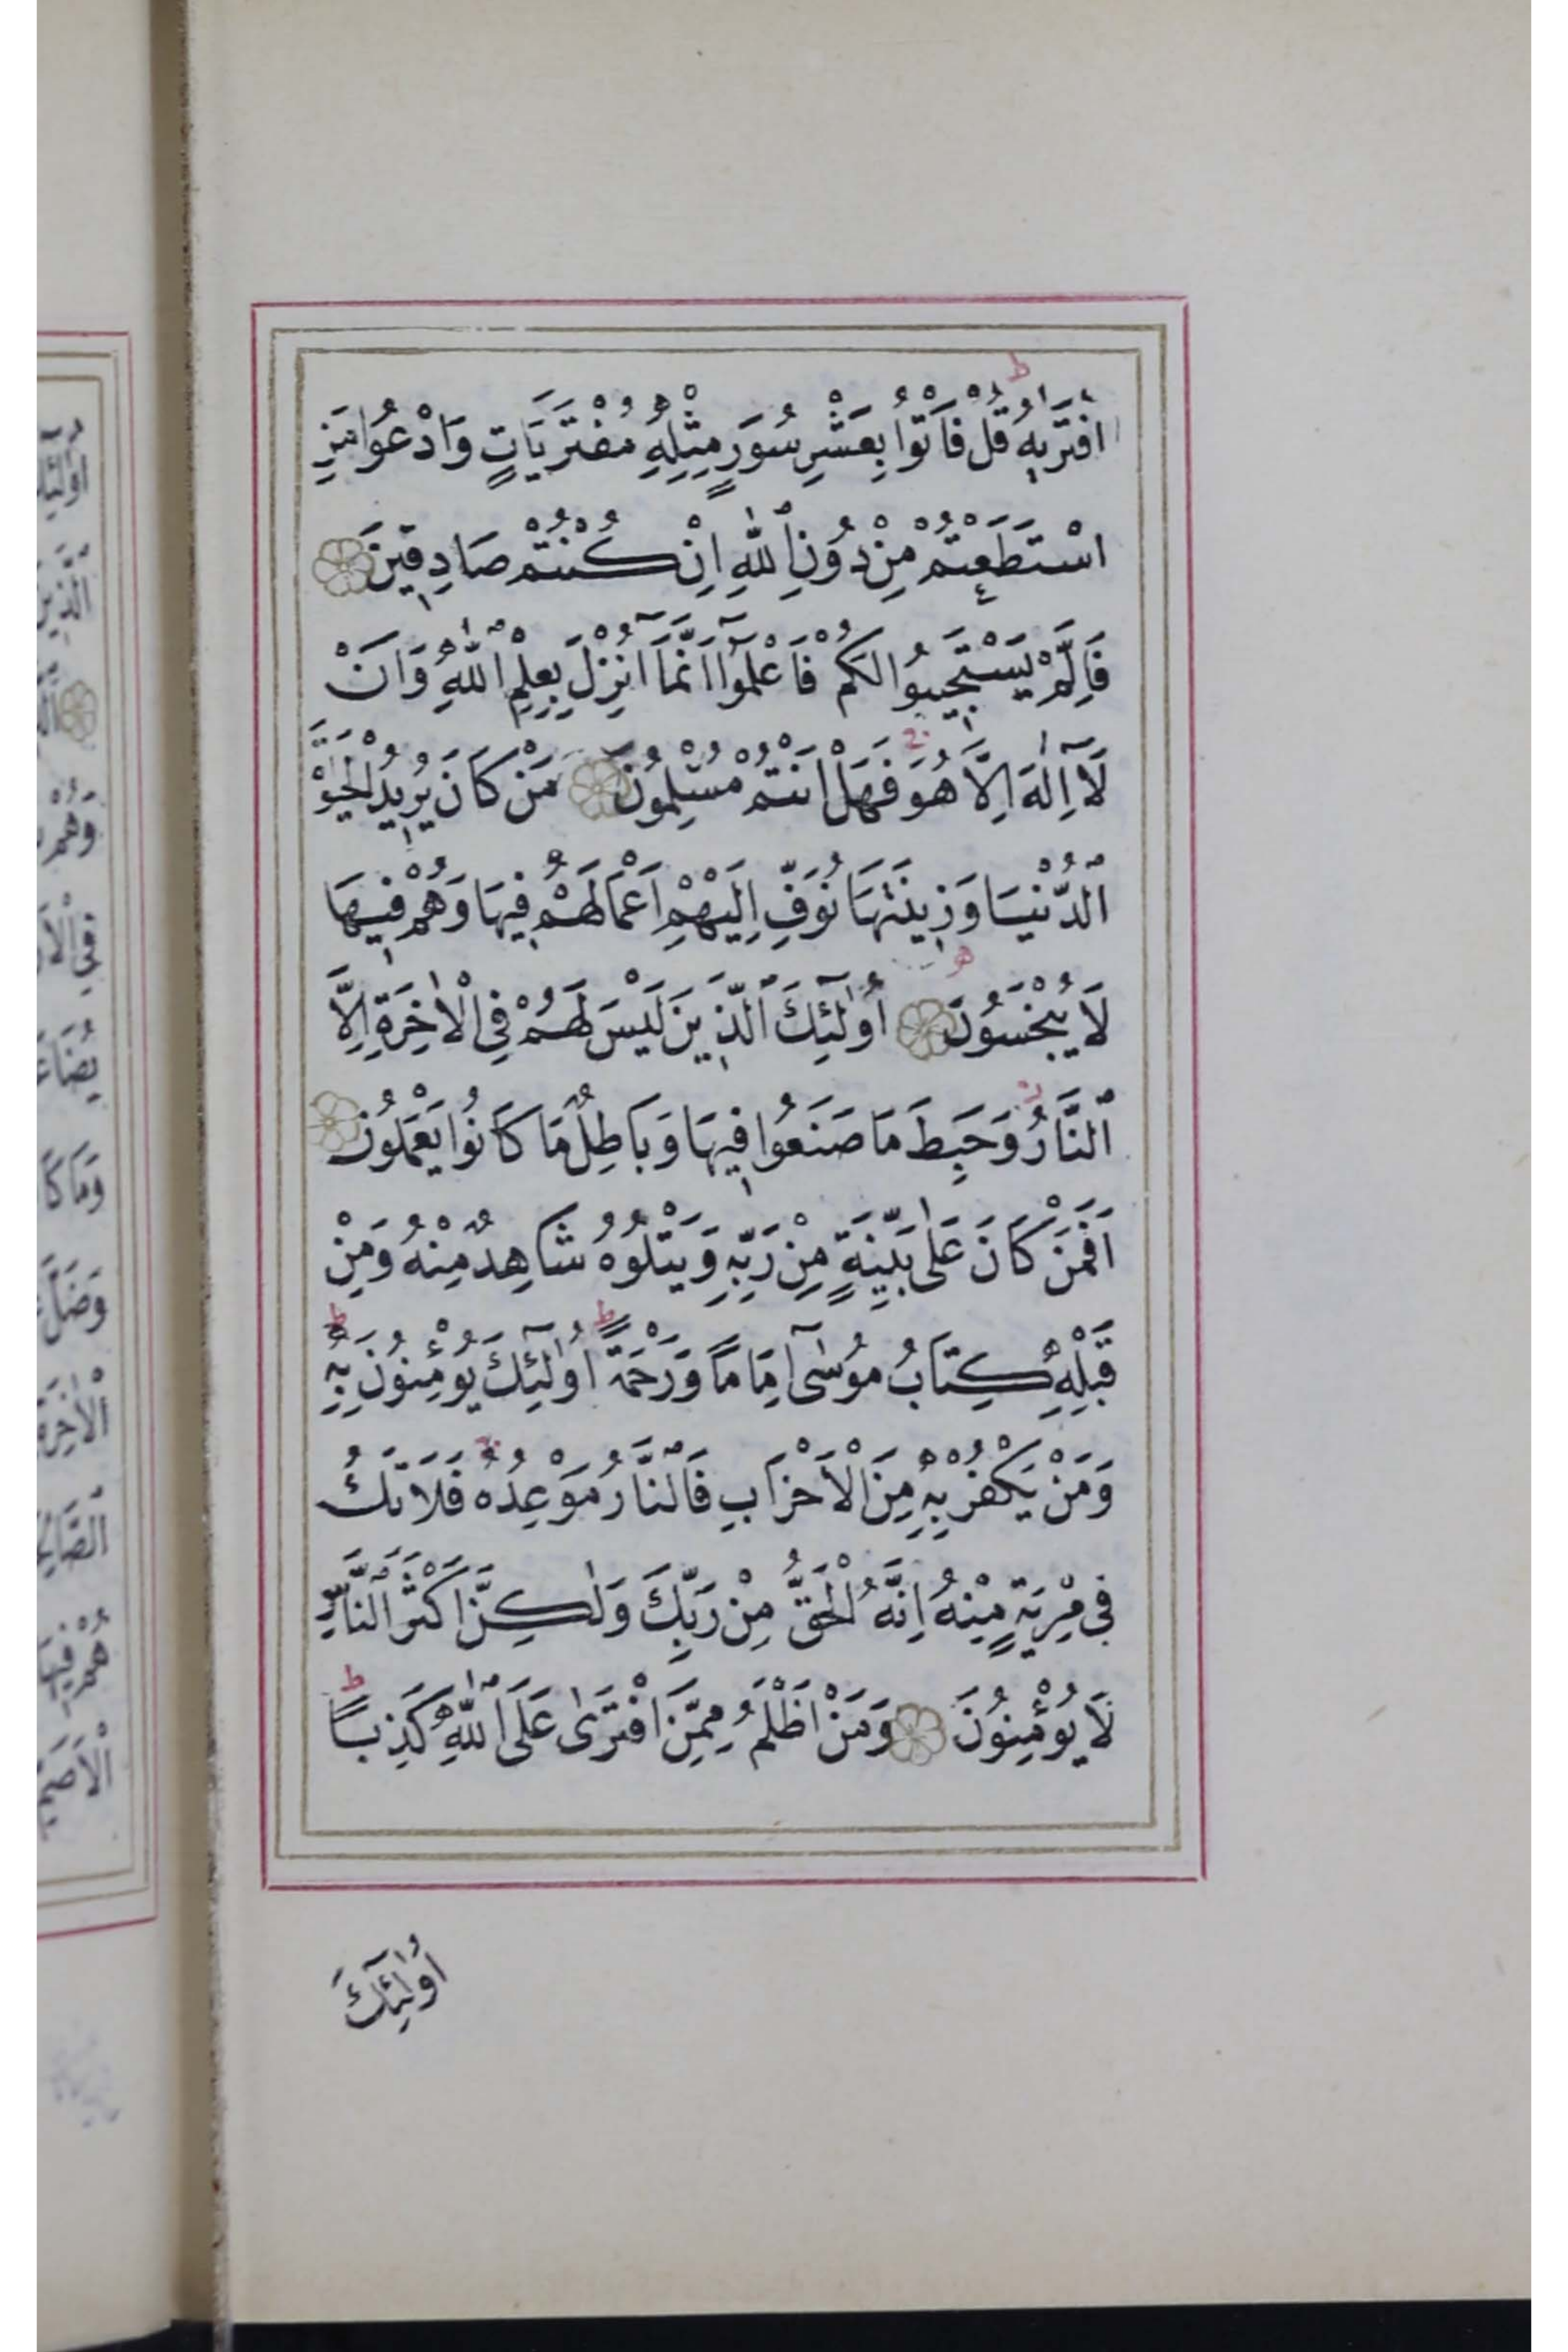 افْتَرٰيهُ قُلْ فَأْتُوا بِعَشْرِ سُوَرٍ مِثْلِهِ مُفْتَرَيَاتٍ وَادْعُوا مَنِ
اسْتَطَعْتُمْ مِنْ دُونِ اللّٰهِ اِنْ كُنْتُمْ صَادِقِينَ
فَاِلَّمْ يَسْتَجِيبُوا لَكُمْ فَاعْلَمُوٓا اَنَّمَٓا اُنْزِلَ بِعِلْمِ اللّٰهِ وَاَنْ
لَٓا اِلٰهَ اِلَّا هُوَ فَهَلْ اَنْتُمْ مُسْلِمُونَ مَنْ كَانَ يُرِيدُ الْحَيٰوةَ
الدُّنْيَا وَزِينَتَهَا نُوَفِّ اِلَيْهِمْ اَعْمَالَهُمْ فِيهَا وَهُمْ فِيهَا
لَا يُبْخَسُونَ اُولٰٓئِكَ الَّذِينَ لَيْسَ لَهُمْ فِي الْاٰخِرَةِ اِلَّا
النَّارُ وَحَبِطَ مَا صَنَعُوا فِيهَا وَبَاطِلٌ مَا كَانُوا يَعْمَلُونَ
اَفَمَنْ كَانَ عَلٰى بَيِّنَةٍ مِنْ رَبِّهِ وَيَتْلُوهُ شَاهِدٌ مِنْهُ وَمِنْ
قَبْلِهِ كِتَابُ مُوسٰٓى اِمَامًا وَرَحْمَةً اُولٰٓئِكَ يُؤْمِنُونَ بِهِ
وَمَنْ يَكْفُرْ بِهِ مِنَ الْاَحْزَابِ فَالنَّارُ مَوْعِدُهُ فَلَا تَكُ
فِي مِرْيَةٍ مِنْهُ اِنَّهُ الْحَقُّ مِنْ رَبِّكَ وَلٰكِنَّ اَكْثَرَ النَّاسِ
لَا يُؤْمِنُونَ وَمَنْ اَظْلَمُ مِمَّنِ افْتَرٰى عَلَى اللّٰهِ كَذِبًا
اُولٰٓئِكَ